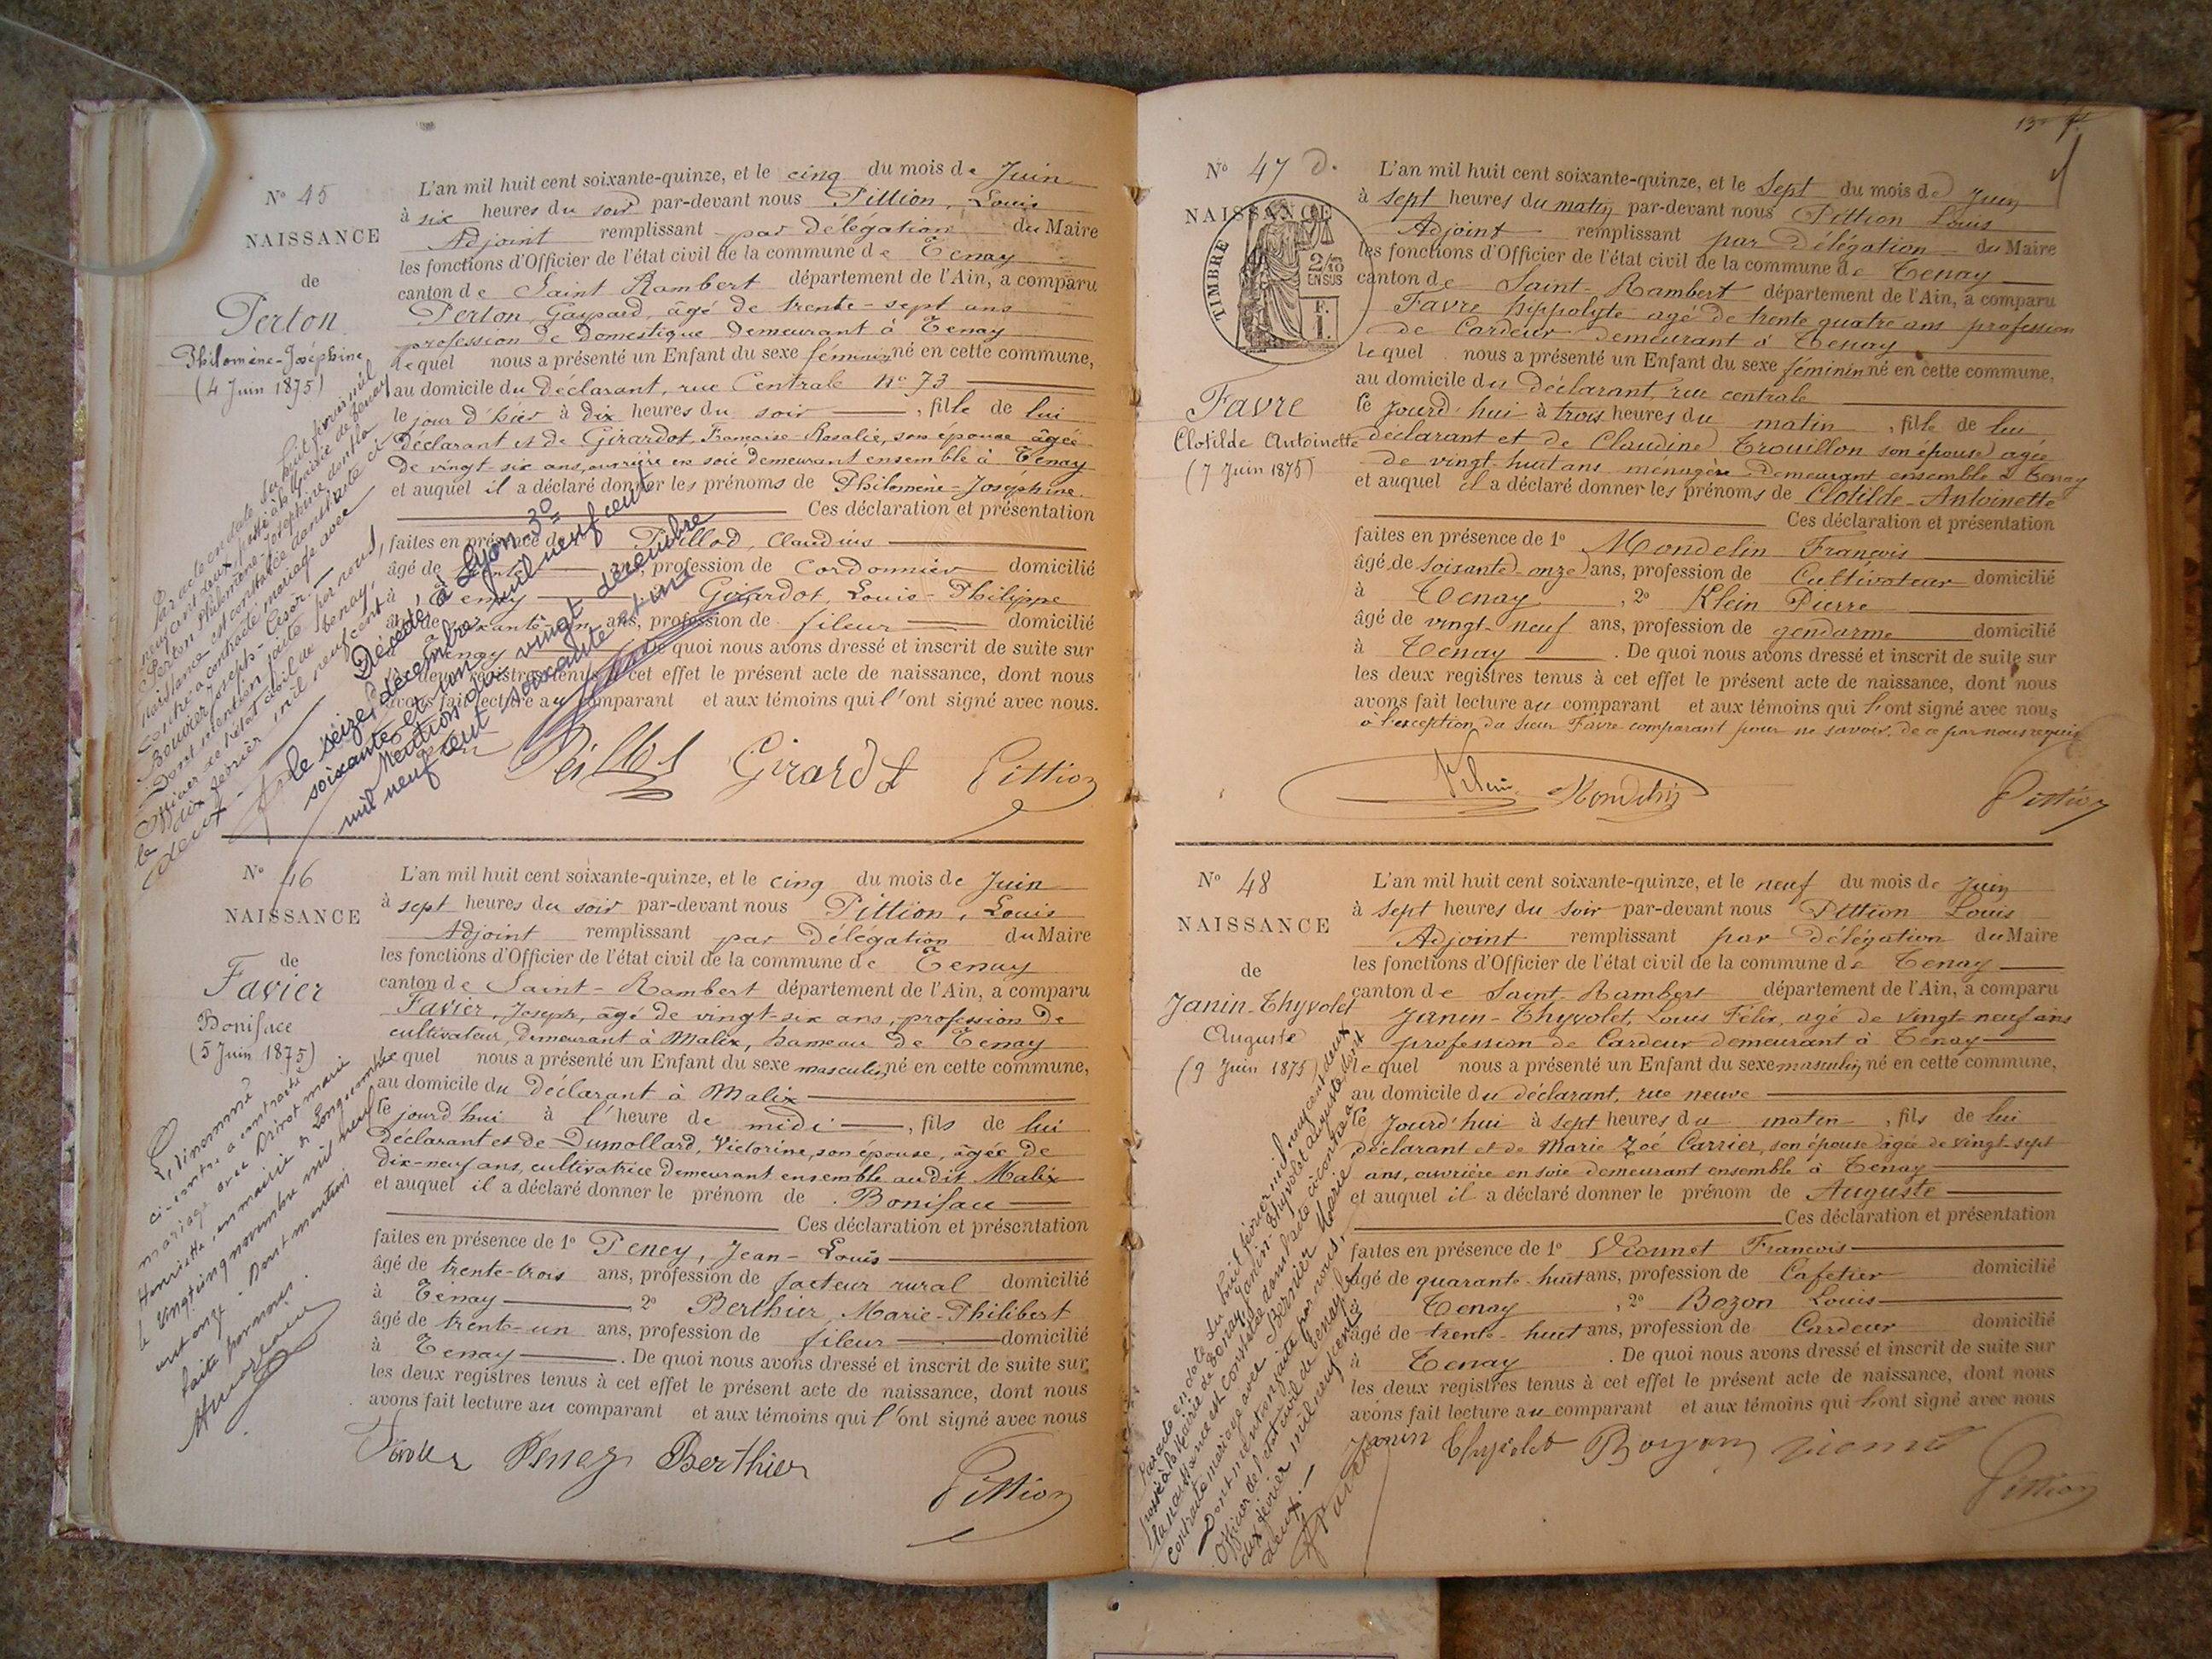 N° 45
NAISSANCE
de
Perton
Philomène-Joséphine
(4 Juin 1875)
L'an mil huit cent soixante-quinze, et le cinq du mois de Juin
à six heures du soir par-devant nous Pittion, Louis
Adjoint remplissant par délégation du Maire
les fonctions d'Officier de l'état civil de la commune de Tenay
canton de Saint Rambert département de l'Ain, a comparu
Perton, Gaspard, âgé de trente-sept ans
profession de Domestique demeurant à Tenay
lequel nous a présenté un Enfant du sexe féminin né en cette commune,
au domicile du Déclarant, rue Centrale N° 73
le jour d'hier à dix heures du soir, fille de lui
déclarant et de Girardot, Françoise-Rosalie, son épouse âgée
de vingt-six ans, ouvrière en soie demeurant ensemble à Tenay
et auquel il a déclaré donner les prénoms de Philomène-Joséphine.
Ces déclaration et présentation
faites en présence de Claudius
âgé de ans, profession de Cordonnier domicilié
à Tenay Girardot, Louis-Philippe
âgé de soixante-un ans, profession de fileur domicilié
à Tenay De quoi nous avons dressé et inscrit de suite sur
les deux registres tenus à cet effet le présent acte de naissance, dont nous
avons fait lecture au comparant et aux témoins qui l'ont signé avec nous.
Girardot Pittion
Par acte en date du huit février mil
neuf cent deux, passé à la Mairie de Tenay
Perton Philomène-Joséphine dont la
naissance est constatée dans l'acte ci-
contre a contracté mariage avec
Bouvier Joseph-César.
Dont mention faite par nous,
Officier de l'état civil de Tenay,
le dix février mil neuf cent
deux.
Décédée à Lyon 3e
le seize décembre mil neuf cent
soixante et un
Mention du vingt décembre
mil neuf cent soixante et un
N° 46
NAISSANCE
de
Favier
Boniface
(5 Juin 1875)
L'an mil huit cent soixante-quinze, et le cinq du mois de Juin
à sept heures du soir par-devant nous Pittion, Louis
Adjoint remplissant par délégation du Maire
les fonctions d'Officier de l'état civil de la commune de Tenay
canton de Saint-Rambert département de l'Ain, a comparu
Favier, Joseph, âgé de vingt-six ans, profession de
cultivateur, demeurant à Malix, hameau de Tenay
lequel nous a présenté un Enfant du sexe masculin né en cette commune,
au domicile du Déclarant à Malix
le jourd'hui à l'heure de midi, fils de lui
déclarant et de Dumollard, Victorine, son épouse, âgée de
dix-neuf ans, cultivatrice demeurant ensemble audit Malix
et auquel il a déclaré donner le prénom de Boniface
Ces déclaration et présentation
faites en présence de 1° Peney, Jean-Louis
âgé de trente-trois ans, profession de facteur rural domicilié
à Tenay, 2° Berthier, Marie-Philibert
âgé de trente-un ans, profession de fileur domicilié
à Tenay. De quoi nous avons dressé et inscrit de suite sur
les deux registres tenus à cet effet le présent acte de naissance, dont nous
avons fait lecture au comparant et aux témoins qui l'ont signé avec nous
Peney Berthier Pittion
Le dénommé
ci-contre a contracté
mariage avec Drivet Marie
Henriette, en mairie de Longecombe
le vingt cinq novembre mil neuf
cent onze. Dont mention
faite par nous.
N° 47
NAISSANCE
TIMBRE
2/10
EN SUS
F.
1.
Favre
Clotilde Antoinette
(7 Juin 1875)
L'an mil huit cent soixante-quinze, et le Sept du mois de Juin
à Sept heures du matin par-devant nous Pittion Louis
Adjoint remplissant par Délégation du Maire
les fonctions d'Officier de l'état civil de la commune de Tenay
canton de Saint-Rambert département de l'Ain, a comparu
Favre hippolyte agé de trente quatre ans profession
de Cardeur demeurant à Tenay
lequel nous a présenté un Enfant du sexe féminin né en cette commune,
au domicile du déclarant, rue centrale
le jourd'hui à trois heures du matin, fille de lui
déclarant et de Claudine Trouillon son épouse agée
de vingt-huit ans ménagère Demeurant ensemble à Tenay
et auquel il a déclaré donner les prénoms de Clotilde-Antoinette
Ces déclaration et présentation
faites en présence de 1° Mondelin François
âgé de soixante-onze ans, profession de Cultivateur domicilié
à Tenay, 2° Klein Pierre
âgé de vingt-neuf ans, profession de gendarme domicilié
à Tenay. De quoi nous avons dressé et inscrit de suite sur
les deux registres tenus à cet effet le présent acte de naissance, dont nous
avons fait lecture au comparant et aux témoins qui l'ont signé avec nous
à l'exception du sieur Favre comparant pour ne savoir, de ce par nous requis
Klein Mondelin Pittion
N° 48
NAISSANCE
de
Janin-Thyvolet
Auguste
(9 Juin 1875)
L'an mil huit cent soixante-quinze, et le neuf du mois de Juin
à sept heures du soir par-devant nous Pittion Louis
Adjoint remplissant par délégation du Maire
les fonctions d'Officier de l'état civil de la commune de Tenay
canton de Saint-Rambert département de l'Ain, a comparu
Janin-Thyvolet, Louis Félix, agé de vingt-neuf ans
profession de Cardeur demeurant à Tenay
lequel nous a présenté un Enfant du sexe masculin né en cette commune,
au domicile du déclarant, rue neuve
le Jourd'hui à sept heures du matin, fils de lui
déclarant et de Marie Zoé Carrier, son épouse agée de vingt-sept
ans, ouvrière en soie demeurant ensemble à Tenay
et auquel il a déclaré donner le prénom de Auguste
Ces déclaration et présentation
faites en présence de 1° Vionnet François
âgé de quarante-huit ans, profession de Cafetier domicilié
à Tenay, 2° Bozon Louis
âgé de trente-huit ans, profession de Cardeur domicilié
à Tenay. De quoi nous avons dressé et inscrit de suite sur
les deux registres tenus à cet effet le présent acte de naissance, dont nous
avons fait lecture au comparant et aux témoins qui l'ont signé avec nous
Janin Thyvolet Bozon Pittion
Par acte en date du huit février mil neuf cent deux
passé à la Mairie de Tenay, Janin-Thyvolet Auguste dont
la naissance est constatée dans l'acte ci-contre a
contracté mariage avec Bernier Marie
Dont mention faite par nous,
Officier de l'état civil de Tenay le
dix février mil neuf cent
deux.